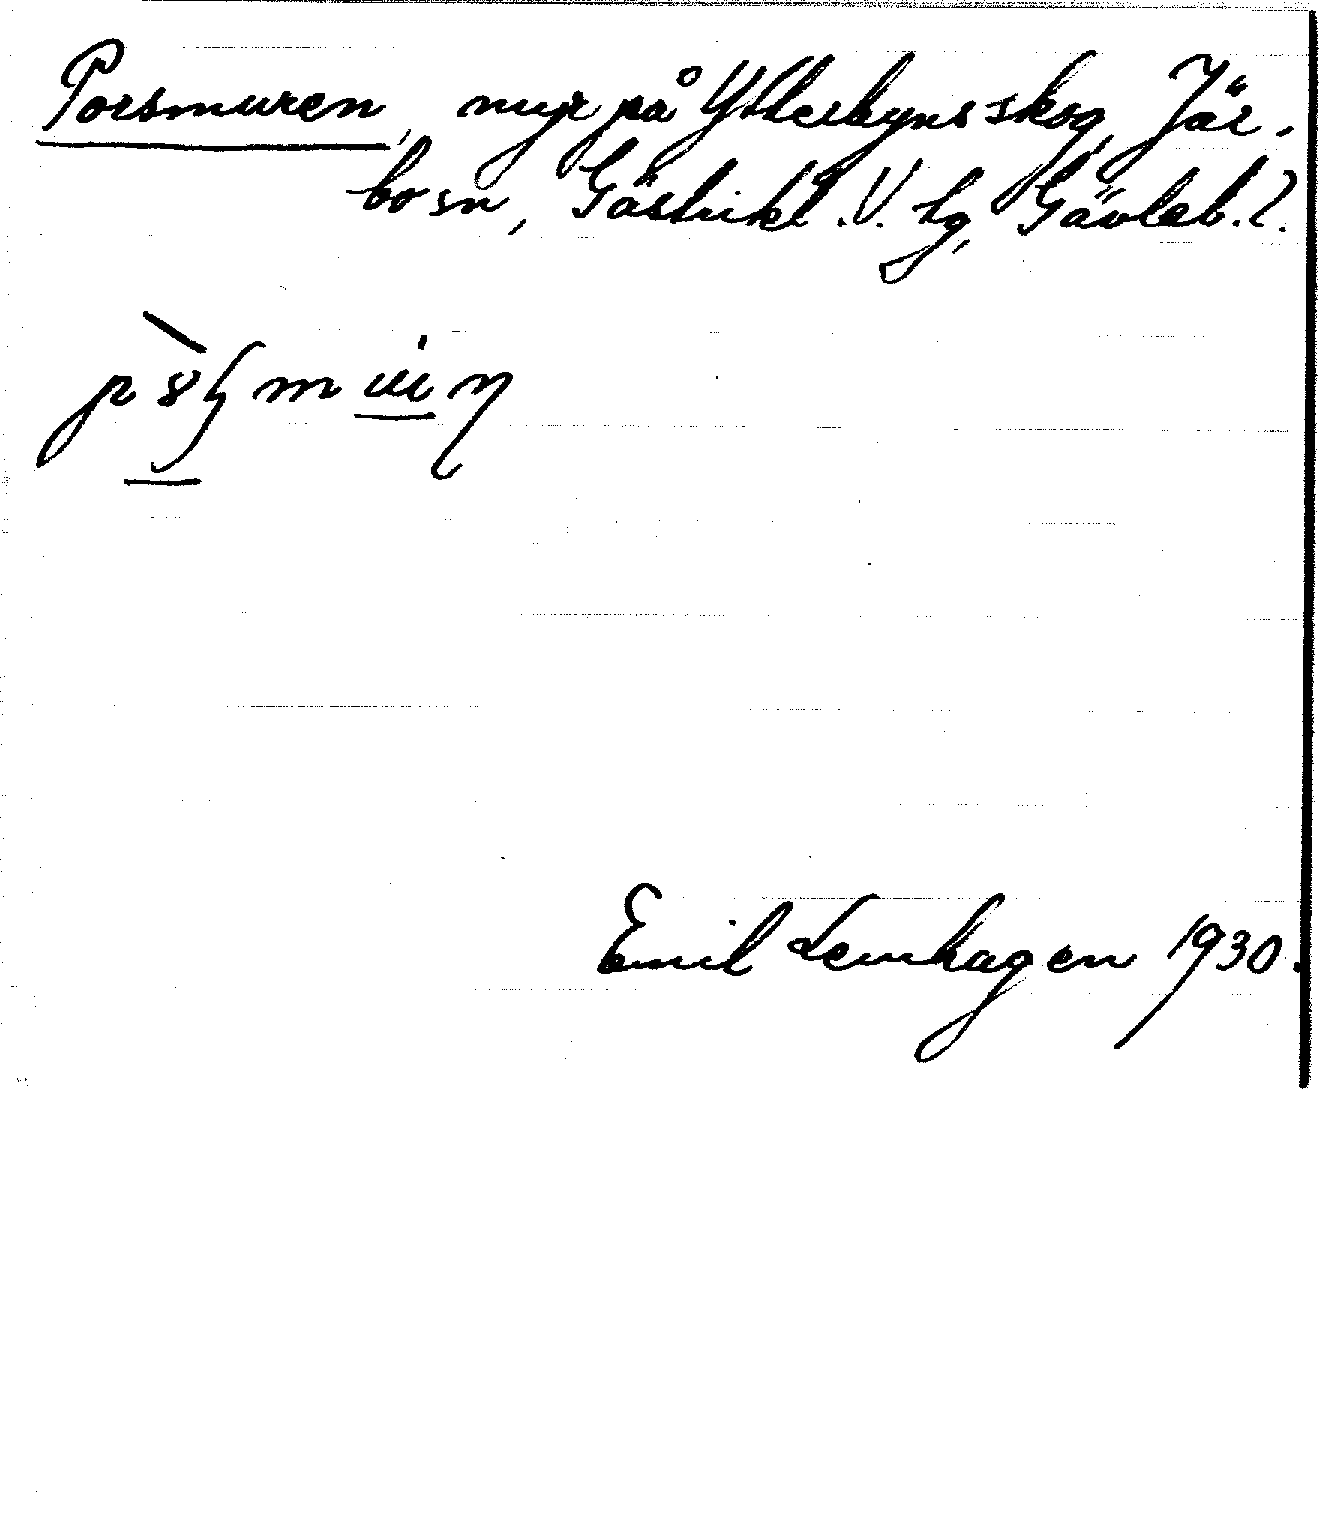 Porsmuren, myr på Ytterbyns skog, Jär-
bo sn, Gästrikl. V. tg, Gävleb. l.
Emil Lenhagen 1930.